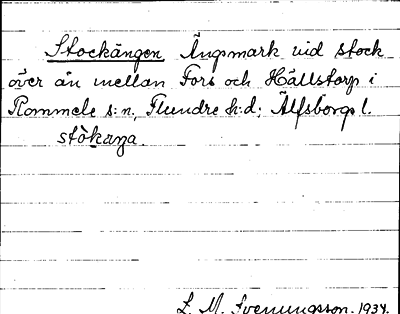 Stockängen Ängsmark vid stock
över ån mellan Fors och Hällstorp i
Rommele s:n, Flundre h:d, Älfsborgs l.
stòkaŋa.
L. M. Svenungsson. 1934.